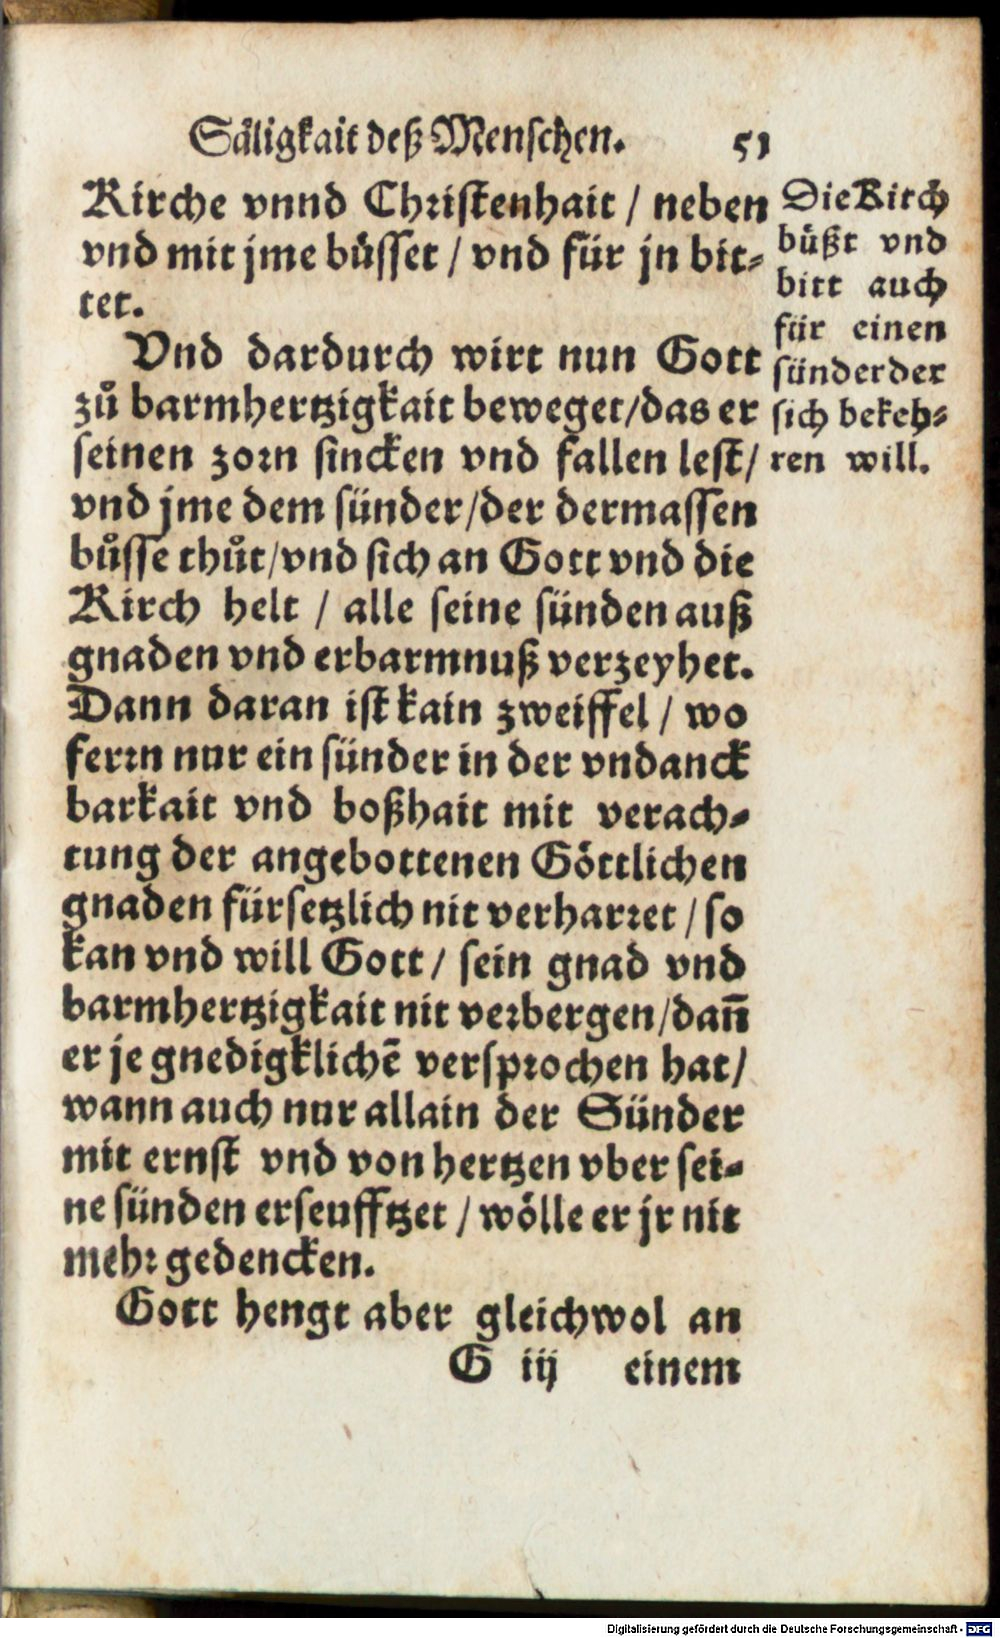 Säligkait deß Menschen. 51
Kirche vnnd Christenhait / neben
vnd mit jme bůsset / vnd für jn bit-
tet.
Vnd dardurch wirt nun Gott
zů barmhertzigkait beweget/das er
seinen zorn sincken vnd fallen lest/
vnd jme dem sünder/der dermassen
bůsse thůt/vnd sich an Gott vnd die
Kirch helt / alle seine sünden auß
gnaden vnd erbarmnuß verzeyhet.
Dann daran ist kain zweiffel / wo
ferrn nur ein sünder in der vndanck
barkait vnd boßhait mit verach-
tung der angebottenen Göttlichen
gnaden fürsetzlich nit verharret / so
kan vnd will Gott / sein gnad vnd
barmhertzigkait nit verbergen/dañ
er je gnedigklichẽ versprochen hat/
wann auch nur allain der Sünder
mit ernst vnd von hertzen vber sei-
ne sünden erseufftzet / wölle er jr nit
mehr gedencken.
Gott hengt aber gleichwol an
G iij einem
Die Kirch
büßt vnd
bitt auch
für einen
sünder der
sich bekeh-
ren will.
Digitalisierung gefördert durch die Deutsche Forschungsgemeinschaft - DFG